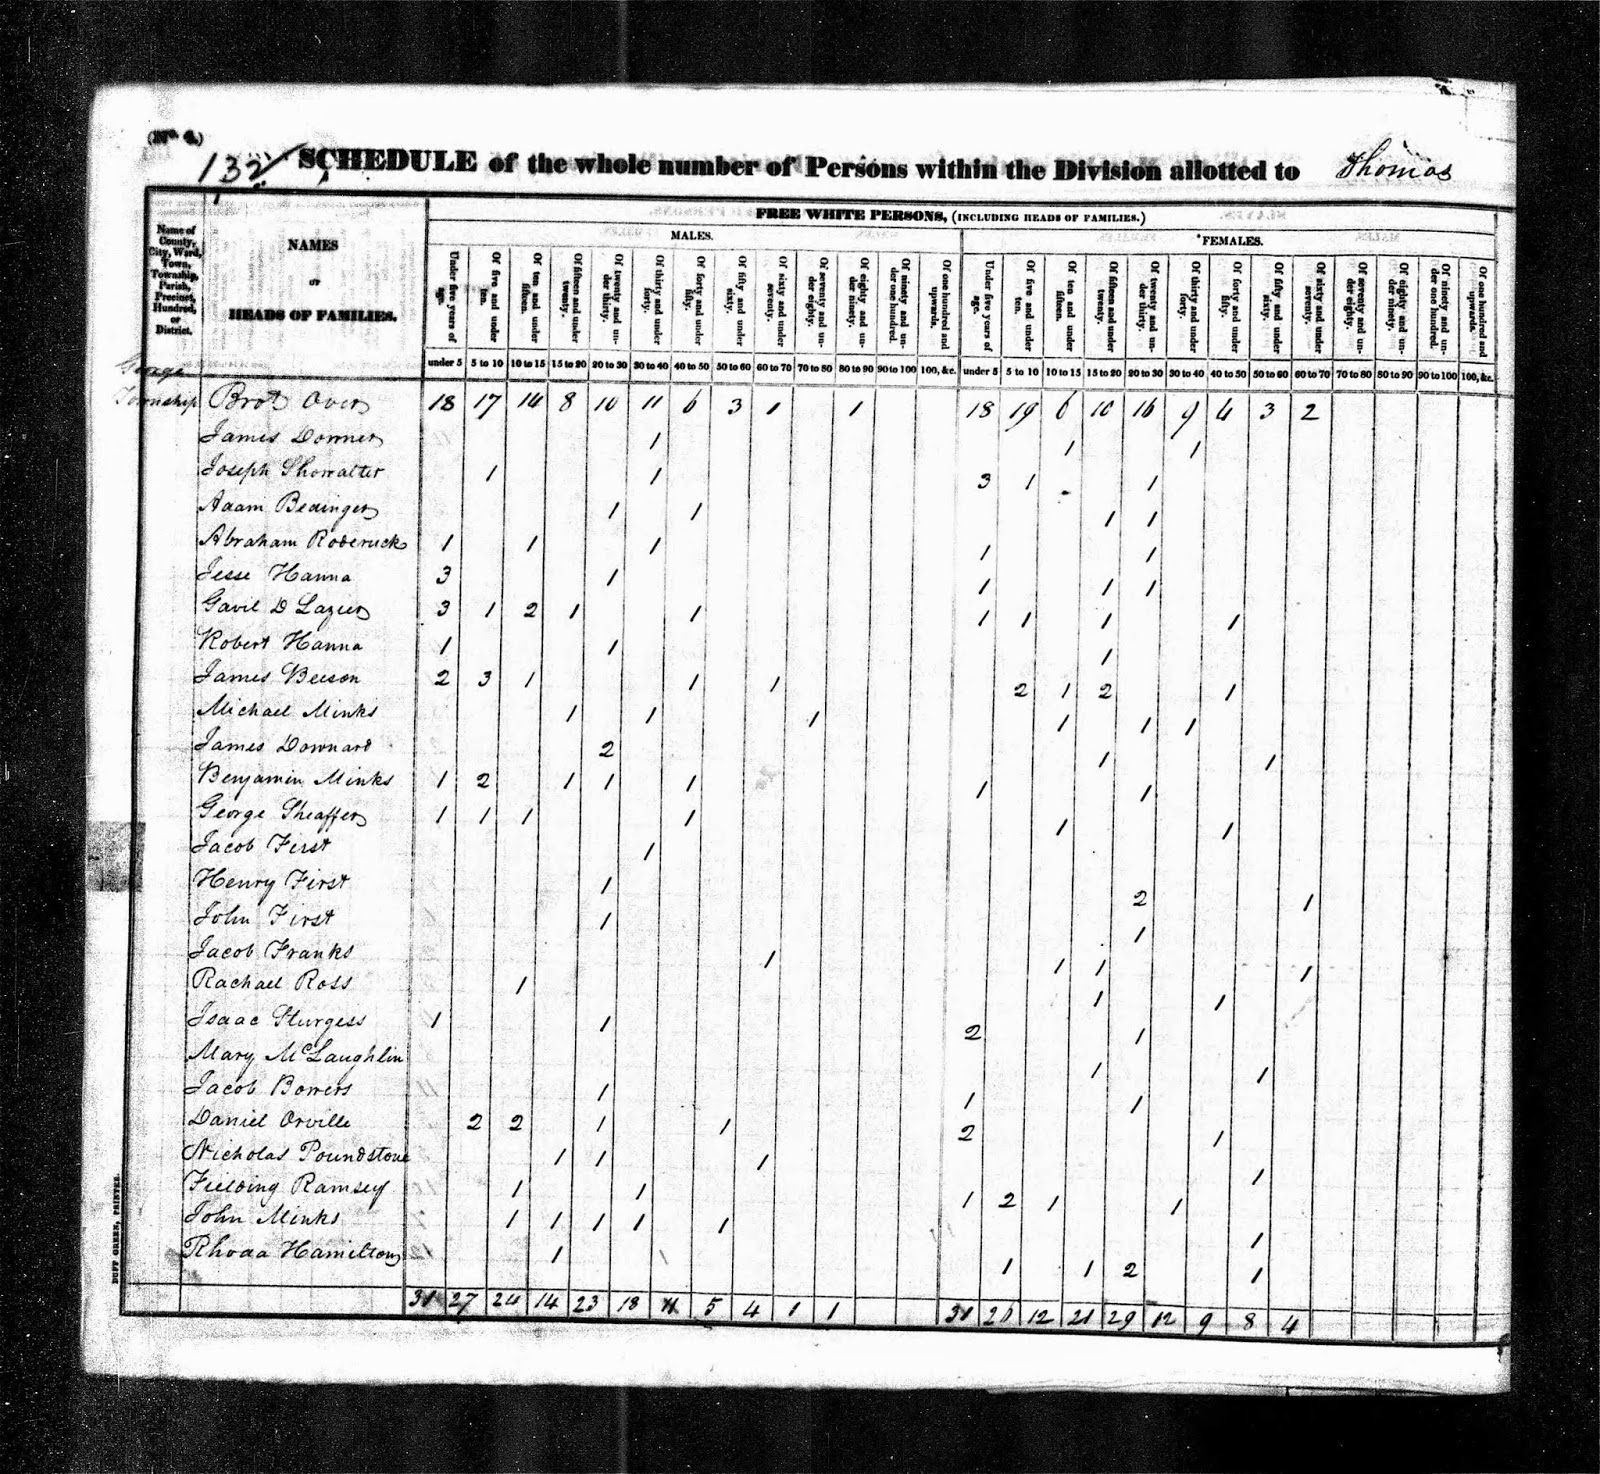 (No. 4.)
132 SCHEDULE of the whole number of Persons within the Division allotted to Thomas
FREE WHITE PERSONS, (INCLUDING HEADS OF FAMILIES.)
MALES. FEMALES.
Name of County, City, Ward, Town, Township, Parish, Precinct, Hundred, or District.
NAMES
OF
HEADS OF FAMILIES.
Under five years of age.
Of five and under ten.
Of ten and under fifteen.
Of fifteen and under twenty.
Of twenty and under thirty.
Of thirty and under forty.
Of forty and under fifty.
Of fifty and under sixty.
Of sixty and under seventy.
Of seventy and under eighty.
Of eighty and under ninety.
Of ninety and under one hundred.
Of one hundred and upwards.
Under five years of age.
Of five and under ten.
Of ten and under fifteen.
Of fifteen and under twenty.
Of twenty and under thirty.
Of thirty and under forty.
Of forty and under fifty.
Of fifty and under sixty.
Of sixty and under seventy.
Of seventy and under eighty.
Of eighty and under ninety.
Of ninety and under one hundred.
Of one hundred and upwards.
under 5 5 to 10 10 to 15 15 to 20 20 to 30 30 to 40 40 to 50 50 to 60 60 to 70 70 to 80 80 to 90 90 to 100 100, &c. under 5 5 to 10 10 to 15 15 to 20 20 to 30 30 to 40 40 to 50 50 to 60 60 to 70 70 to 80 80 to 90 90 to 100 100, &c.
Township Brot Over 18 17 14 8 10 11 6 3 1 1 18 19 6 10 16 9 4 3 2
James Downer 1 1 1
Joseph Showalter 1 1 3 1 1
Adam Bedinger 1 1 1 1
Abraham Roderuck 1 1 1 1 1
Jesse Hanna 3 1 1 1 1
Gavil D Lazier 3 1 2 1 1 1 1 1 1
Robert Hanna 1 1 1
James Beeson 2 3 1 1 1 2 1 2 1
Michael Minks 1 1 1 1 1 1
James Downard 2 1 1
Benjamin Minks 1 2 1 1 1 1 1
George Sheaffer 1 1 1 1 1 1
Jacob First 1
Henry First 1 2 1
John First 1 1
Jacob Franks 1 1 1 1
Rachael Ross 1 1 1
Isaac Sturgess 1 1 2 1
Mary McLaughlin 1 1
Jacob Bowers 1 1 1
Daniel Orville 2 2 1 1 2 1
Nicholas Poundstone 1 1 1 1
Fielding Ramsey 1 1 1 2 1 1
John Minks 1 1 1 1 1 1
Rhoda Hamilton 1 1 1 2 1
31 27 24 14 23 18 11 5 4 1 1 31 12 21 29 12 9 8 4
DUFF GREEN, PRINTER.